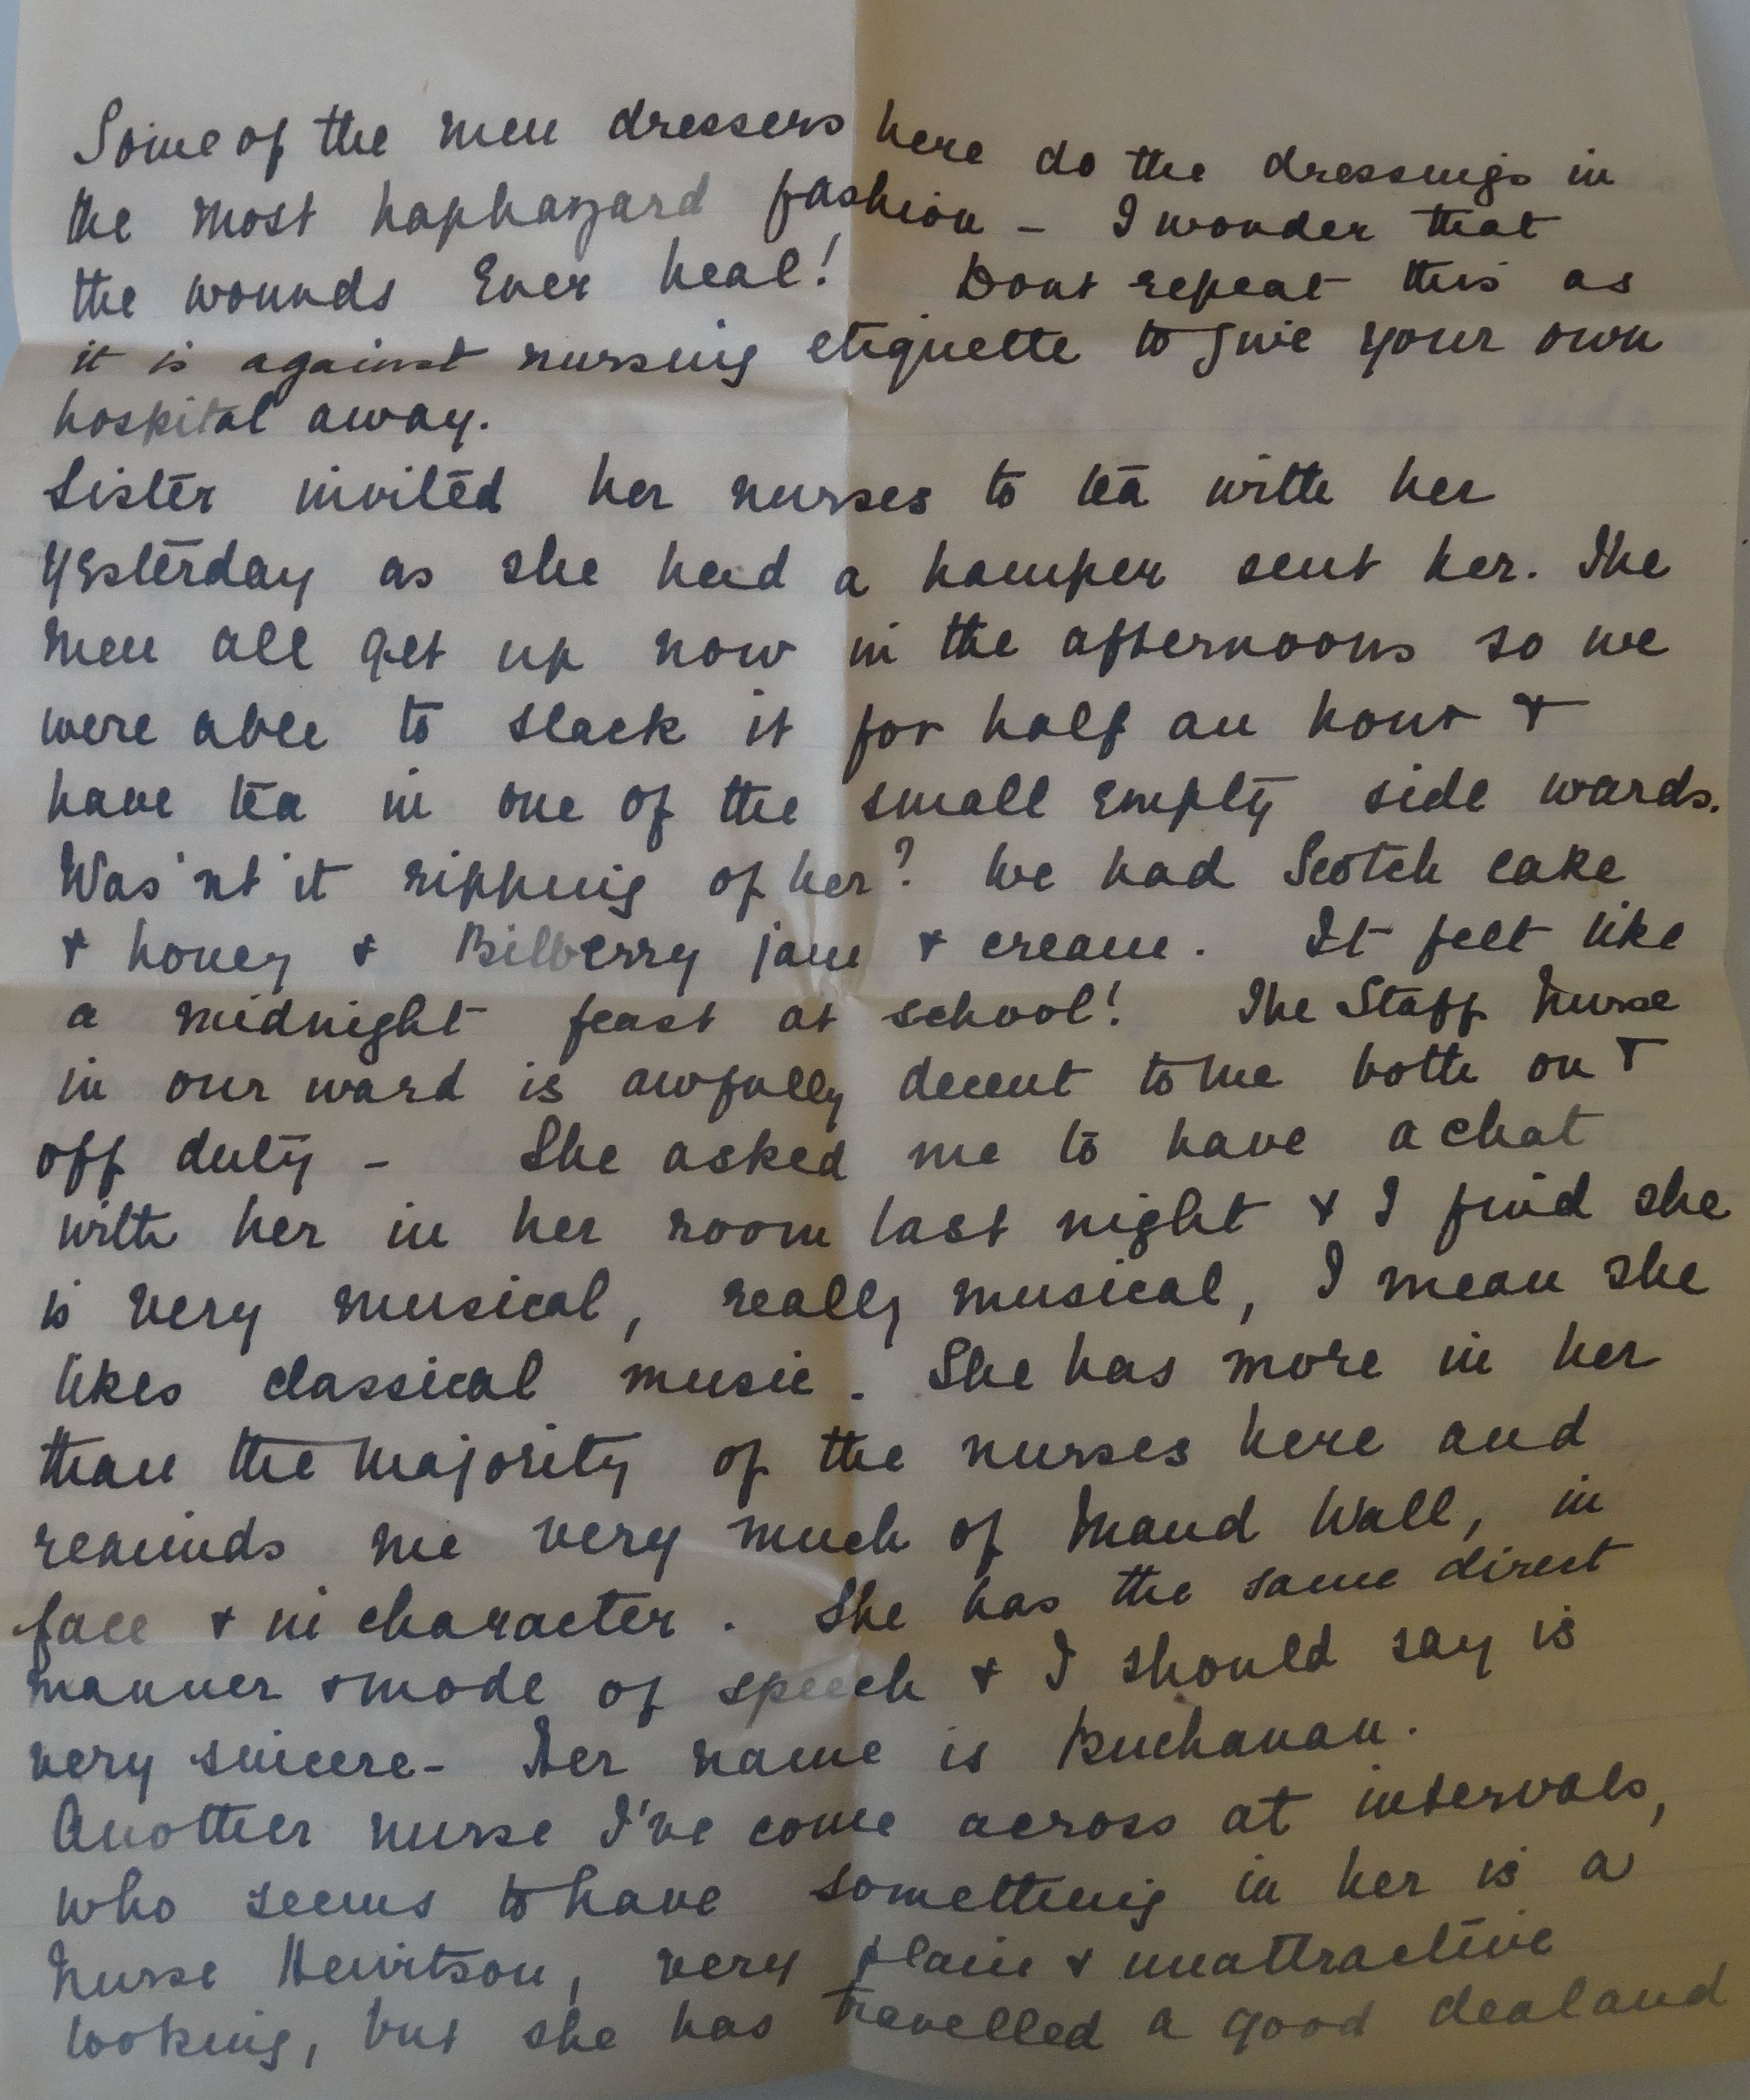 Some of the men dressers here do the dressings in
the most haphazard fashion - I wonder that
the wounds ever heal! Dont repeat this as
it is against nursing etiquette to give your own
hospital away.
Sister invited her nurses to tea with her
yesterday as she had a hamper sent her. The
men all get up now in the afternoons so we
were able to slack it for half an hour &
have tea in one of the small empty side wards.
Was'nt it ripping of her? We had Scotch cake
& honey & Bilberry jam & cream. It felt like
a midnight feast at school! The Staff Nurse
in our ward is awfully decent to me both on &
off duty - She asked me to have a chat
with her in her room last night & I find she
is very musical, really musical, I mean she
likes classical music. She has more in her
than the majority of the nurses here and
reminds me very much of Maud Wall, in
face & in character. She has the same direct
manner & mode of speech & I should say is
very sincere - Her name is Buchanan.
Another nurse I've come across at intervals,
who seems to have something in her is a
Nurse Hewitson, very plain & unattractive
looking, but she has travelled a good deal and